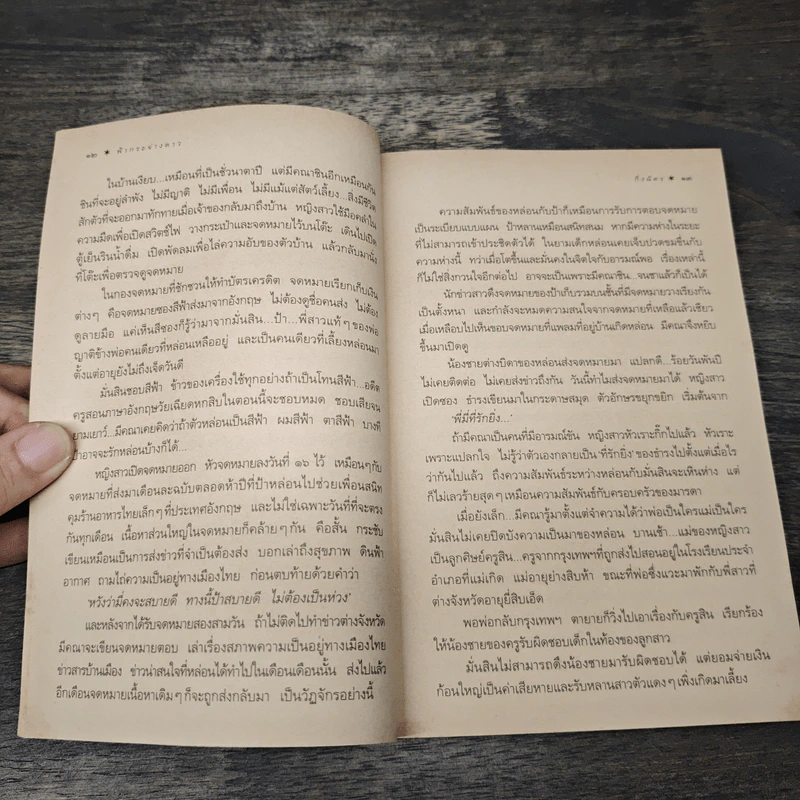 ๑๒ ★ ฟ้ากระจ่างดาว
ในบ้านเงียบ...เหมือนที่เป็นชั่วนาตาปี แต่มีคณาชินอีกเหมือนกัน
ชินที่จะอยู่ลำพัง ไม่มีญาติ ไม่มีเพื่อน ไม่มีแม้แต่สัตว์เลี้ยง...สิ่งมีชีวิต
สักตัวที่จะออกมาทักทายเมื่อเจ้าของกลับมาถึงบ้าน หญิงสาวใช้มือคลำใน
ความมืดเพื่อเปิดสวิตช์ไฟ วางกระเป๋าและจดหมายไว้บนโต๊ะ เดินไปเปิด
ตู้เย็นรินน้ำดื่ม เปิดพัดลมเพื่อไล่ความอับของตัวบ้าน แล้วกลับมานั่ง
ที่โต๊ะเพื่อตรวจดูจดหมาย
ในกองจดหมายที่ชักชวนให้ทำบัตรเครดิต จดหมายเรียกเก็บเงิน
ต่างๆ คือจดหมายซองสีฟ้าส่งมาจากอังกฤษ ไม่ต้องดูชื่อคนส่ง ไม่ต้อง
ดูลายมือ แค่เห็นสีซองก็รู้ว่ามาจากมั่นสิน...ป้า...พี่สาวแท้ๆ ของพ่อ
ญาติข้างพ่อคนเดียวที่หล่อนเหลืออยู่ และเป็นคนเดียวที่เลี้ยงหล่อนมา
ตั้งแต่อายุยังไม่ถึงเจ็ดวันดี
มั่นสินชอบสีฟ้า ข้าวของเครื่องใช้ทุกอย่างถ้าเป็นโทนสีฟ้า...อดีต
ครูสอนภาษาอังกฤษวัยเฉียดหกสิบในตอนนี้จะชอบหมด ชอบเสียจน
ยามเยาว์...มีคณาเคยคิดว่าถ้าตัวหล่อนเป็นสีฟ้า ผมสีฟ้า ตาสีฟ้า บางที
ป้าอาจจะรักหล่อนบ้างก็ได้...
หญิงสาวเปิดจดหมายออก หัวจดหมายลงวันที่ ๑๖ ไว้ เหมือนๆ กับ
จดหมายที่ส่งมาเดือนละฉบับตลอดห้าปีที่ป้าหล่อนไปช่วยเพื่อนสนิท
คุมร้านอาหารไทยเล็กๆ ที่ประเทศอังกฤษ และไม่ใช่เฉพาะวันที่ที่จะตรง
กันทุกเดือน เนื้อหาส่วนใหญ่ในจดหมายก็คล้ายๆ กัน คือสั้น กระชับ
เขียนเหมือนเป็นการส่งข่าวที่จำเป็นต้องส่ง บอกเล่าถึงสุขภาพ ดินฟ้า
อากาศ ถามไถ่ความเป็นอยู่ทางเมืองไทย ก่อนตบท้ายด้วยคำว่า
'หวังว่ามี่คงจะสบายดี ทางนี้ป้าสบายดี ไม่ต้องเป็นห่วง'
และหลังจากได้รับจดหมายสองสามวัน ถ้าไม่ติดไปทำข่าวต่างจังหวัด
มีคณาจะเขียนจดหมายตอบ เล่าเรื่องสภาพความเป็นอยู่ทางเมืองไทย
ข่าวสารบ้านเมือง ข่าวน่าสนใจที่หล่อนได้ทำไปในเดือนเดือนนั้น ส่งไปแล้ว
อีกเดือนจดหมายเนื้อหาเดิมๆ ก็จะถูกส่งกลับมา เป็นวัฏจักรอย่างนี้
กิ่งฉัตร ★ ๑๓
ความสัมพันธ์ของหล่อนกับป้าก็เหมือนการรับการตอบจดหมาย
เป็นระเบียบแบบแผน ป้าหลานเหมือนสนิทสนม หากมีความห่างในระยะ
ที่ไม่สามารถเข้าประชิดตัวได้ ในยามเด็กหล่อนเคยเจ็บปวดขมขื่นกับ
ความห่างนี้ ทว่าเมื่อโตขึ้นและมั่นคงในจิตใจกับอารมณ์พอ เรื่องเหล่านี้
ก็ไม่ใช่สิ่งกวนใจอีกต่อไป อาจจะเป็นเพราะมีคณาชิน...จนชาแล้วก็เป็นได้
นักข่าวสาวดึงจดหมายของป้าเก็บรวมบนชั้นที่มีจดหมายวางเรียงกัน
เป็นตั้งหนา และกำลังจะหมดความสนใจจากจดหมายที่เหลือแล้วเชียว
เมื่อเหลือบไปเห็นขอบจดหมายที่แพลมที่อยู่บ้านเกิดหล่อน มีคณาจึงหยิบ
ขึ้นมาเปิดดู
น้องชายต่างบิดาของหล่อนส่งจดหมายมา แปลกดี...ร้อยวันพันปี
ไม่เคยติดต่อ ไม่เคยส่งข่าวถึงกัน วันนี้ทำไมส่งจดหมายมาได้ หญิงสาว
เปิดซอง ธำรงเขียนมาในกระดาษสมุด ตัวอักษรขยุกขยิก เริ่มต้นจาก
'พี่มี่ที่รักยิ่ง...'
ถ้ามีคณาเป็นคนที่มีอารมณ์ขัน หญิงสาวหัวเราะกิ๊กไปแล้ว หัวเราะ
เพราะแปลกใจ ไม่รู้ว่าตัวเองกลายเป็น 'ที่รักยิ่ง' ของธำรงไปตั้งแต่เมื่อไร
ว่ากันไปแล้ว ถึงความสัมพันธ์ระหว่างหล่อนกับมั่นสินจะเหินห่าง แต่
ก็ไม่เลวร้ายสุดๆ เหมือนความสัมพันธ์กับครอบครัวของมารดา
เมื่อยังเล็ก...มีคณารู้มาตั้งแต่จำความได้ว่าพ่อเป็นใครแม่เป็นใคร
มั่นสินไม่เคยปิดบังความเป็นมาของหล่อน บานเช้า...แม่ของหญิงสาว
เป็นลูกศิษย์ครูสิน...ครูจากกรุงเทพฯที่ถูกส่งไปสอนอยู่ในโรงเรียนประจำ
อำเภอที่แม่เกิด แม่อายุย่างสิบห้า ขณะที่พ่อซึ่งแวะมาพักกับพี่สาวที่
ต่างจังหวัดอายุยี่สิบเอ็ด
พอพ่อกลับกรุงเทพฯ ตายายก็วิ่งไปเอาเรื่องกับครูสิน เรียกร้อง
ให้น้องชายของครูรับผิดชอบเด็กในท้องของลูกสาว
มั่นสินไม่สามารถดึงน้องชายมารับผิดชอบได้ แต่ยอมจ่ายเงิน
ก้อนใหญ่เป็นค่าเสียหายและรับหลานสาวตัวแดงๆ เพิ่งเกิดมาเลี้ยง